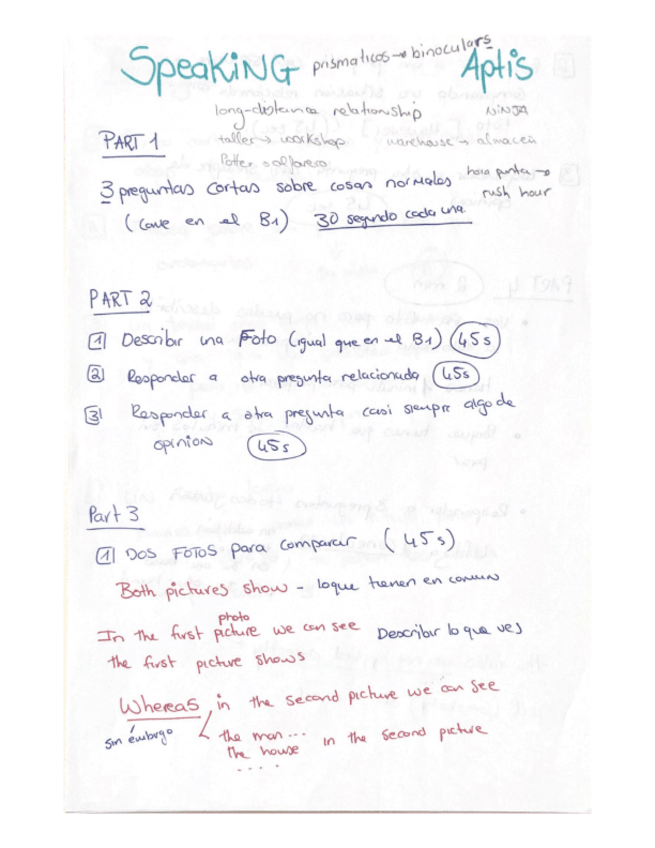 SPEAKING prismaticos → binoculars Aptis
long-distance relationship NINJA
PART 1 taller → workshop warehouse → almacén
3 preguntas cortas sobre cosas normales hora punta → rush hour
(como en el B1) 30 segundo cada una
PART 2
1 Describir una Foto (igual que en el B1) 45s
2 Responder a otra pregunta relacionada 45s
3 Responder a otra pregunta casi siempre algo de
opinion 45s
Part 3
1 DOS FOTOS para comparar (45s)
Both pictures show - lo que tienen en comun
photo
In the first picture we can see Describir lo que ves
the first picture shows
Whereas in the second picture we can see
sin embargo the man... in the second picture
the house
....